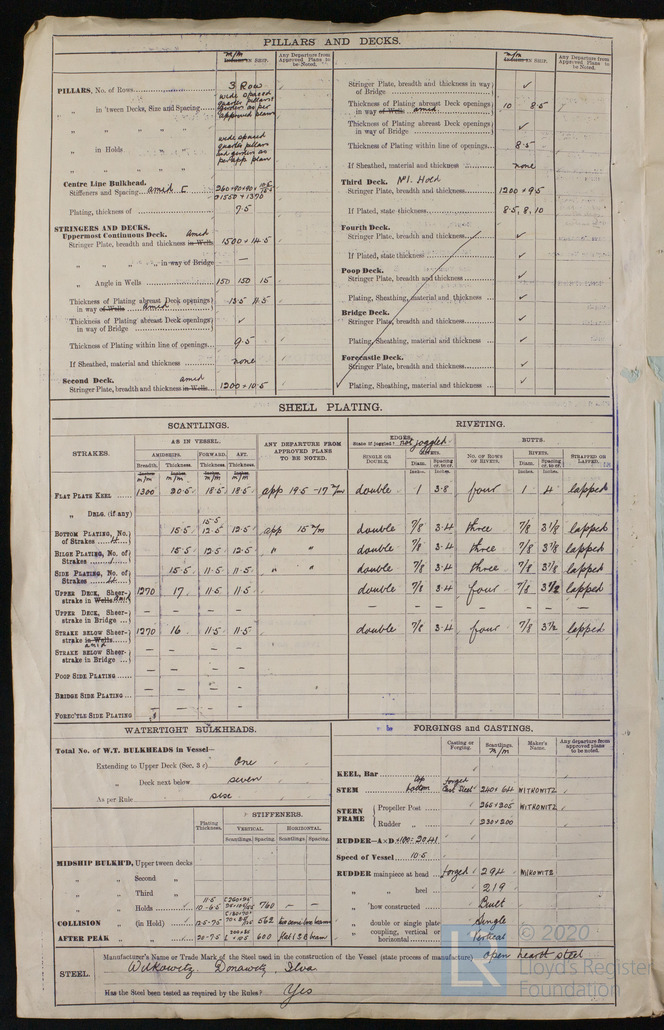 PILLARS AND DECKS.
m/m
Inches IN SHIP.
Any Departure from Approved Plans to be Noted.
PILLARS, No. of Rows
3 Row
„ in 'tween Decks, Size and Spacing
wide spaced quarter pillars girders as per approved plan
„ in Holds
wide spaced quarter pillars and girders as per app plan
Centre Line Bulkhead.
Stiffeners and Spacing amid
Plating, thickness of
7.5
STRINGERS AND DECKS.
Uppermost Continuous Deck.
Stringer Plate, breadth and thickness in Wells
amid
1500 + 14.5
„ „ „ „ in way of Bridge
—
„ Angle in Wells
150 150 15
Thickness of Plating abreast Deck openings in way of Wells
amid
13.5 11.5
Thickness of Plating abreast Deck openings in way of Bridge
✓
Thickness of Plating within line of openings
9.5
If Sheathed, material and thickness
none
Second Deck.
Stringer Plate, breadth and thickness in Wells
amid
1200 + 10.5
m/m
Inches IN SHIP.
Any Departure from Approved Plans to be Noted.
Stringer Plate, breadth and thickness in way of Bridge
✓
Thickness of Plating abreast Deck openings in way of Wells
amid
10 8.5
Thickness of Plating abreast Deck openings in way of Bridge
✓
Thickness of Plating within line of openings
8.5
If Sheathed, material and thickness
none
Third Deck. No 1. Hold
Stringer Plate, breadth and thickness
1200 + 9.5
If Plated, state thickness
8.5, 8, 10
Fourth Deck.
Stringer Plate, breadth and thickness
✓
If Plated, state thickness
✓
Poop Deck.
Stringer Plate, breadth and thickness
✓
Plating, Sheathing, material and thickness
✓
Bridge Deck.
Stringer Plate, breadth and thickness
✓
Plating, Sheathing, material and thickness
✓
Forecastle Deck.
Stringer Plate, breadth and thickness
✓
Plating, Sheathing, material and thickness
✓
SHELL PLATING.
SCANTLINGS.
RIVETING.
STRAKES.
AS IN VESSEL.
AMIDSHIPS. FORWARD. AFT.
Breadth. Thickness. Thickness. Thickness.
Inches m/m
ANY DEPARTURE FROM APPROVED PLANS TO BE NOTED.
EDGES.
State if joggled? Not joggled
SINGLE OR DOUBLE.
RIVETS.
Diam. Spacing cr. to cr.
Inches. Inches.
BUTTS.
NO. OF ROWS OF RIVETS.
RIVETS.
Diam. Spacing cr. to cr.
Inches. Inches.
STRAPPED OR LAPPED.
FLAT PLATE KEEL 1300 20.5 18.5 18.5 app 19.5 – 17 m/m double 1 3.8 four 1 4 lapped
„ DBLG. (if any)
15.5
BOTTOM PLATING, No. of Strakes 4 15.5 12.5 12.5 app 15 m/m double 7/8 3.4 three 7/8 3 1/8 lapped
BILGE PLATING, No. of Strakes 1 15.5 12.5 12.5 „ „ double 7/8 3.4 three 7/8 3 1/8 lapped
SIDE PLATING, No. of Strakes 4 15.5 11.5 11.5 „ „ double 7/8 3.4 three 7/8 3 1/8 lapped
UPPER DECK, Sheerstrake in Wells amid 1270 17 11.5 11.5 double 7/8 3.4 four 7/8 3 1/2 lapped
UPPER DECK, Sheerstrake in Bridge — — — — — — — — — — —
STRAKE BELOW Sheerstrake in Wells amid 1270 16 11.5 11.5 double 7/8 3.4 four 7/8 3 1/2 lapped
STRAKE BELOW Sheerstrake in Bridge — — — —
POOP SIDE PLATING — — — —
BRIDGE SIDE PLATING — — — —
FOREC'TLE SIDE PLATING — — —
WATERTIGHT BULKHEADS.
Total No. of W.T. BULKHEADS in Vessel—
Extending to Upper Deck (Sec. 3 c) One
„ Deck next below seven
As per Rule six
Plating Thickness.
STIFFENERS.
VERTICAL. HORIZONTAL.
Scantlings. Spacing. Scantlings. Spacing.
MIDSHIP BULKH'D, Upper tween decks
„ „ Second „
„ „ Third „
„ „ Holds 11.5 10–6.5 760 — —
COLLISION „ (in Hold) 12.5–7.5 562
AFTER PEAK „ „ 20–7.5 600
FORGINGS and CASTINGS.
Casting or Forging.
Scantlings. m/m
Maker's Name.
Any departure from approved plans to be noted.
KEEL, Bar
STEM top bottom forged cast steel 240 × 64 WITKOWITZ
STERN FRAME
Propeller Post 265 × 205 WITKOWITZ
Rudder „ 230 × 200
RUDDER—A × D
Speed of Vessel 10.5
RUDDER mainpiece at head forged 294 WITKOWITZ
„ „ heel 219
„ how constructed Built
„ double or single plate Single
„ coupling, vertical or horizontal Vertical
STEEL.
Manufacturer's Name or Trade Mark of the Steel used in the construction of the Vessel (state process of manufacture) open hearth steel
Witkowitz, Donawitz, Ilva
Has the Steel been tested as required by the Rules? Yes
© 2020
LR
Lloyd's Register
Foundation